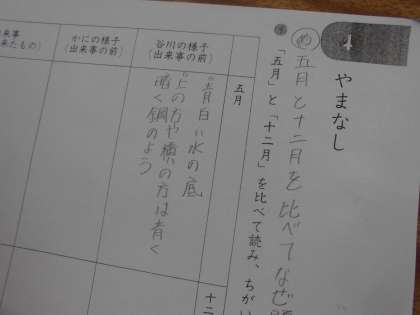 4
やまなし
め 五月と十二月を比べてなぜ
「五月」と「十二月」を比べて読み、ちがい
五月
十二
谷川の様子
(出来事の前)
・青白い水の底
・上の方や横の方は青く
暗く鋼のよう
かにの様子
(出来事の前)
来事
来たもの)